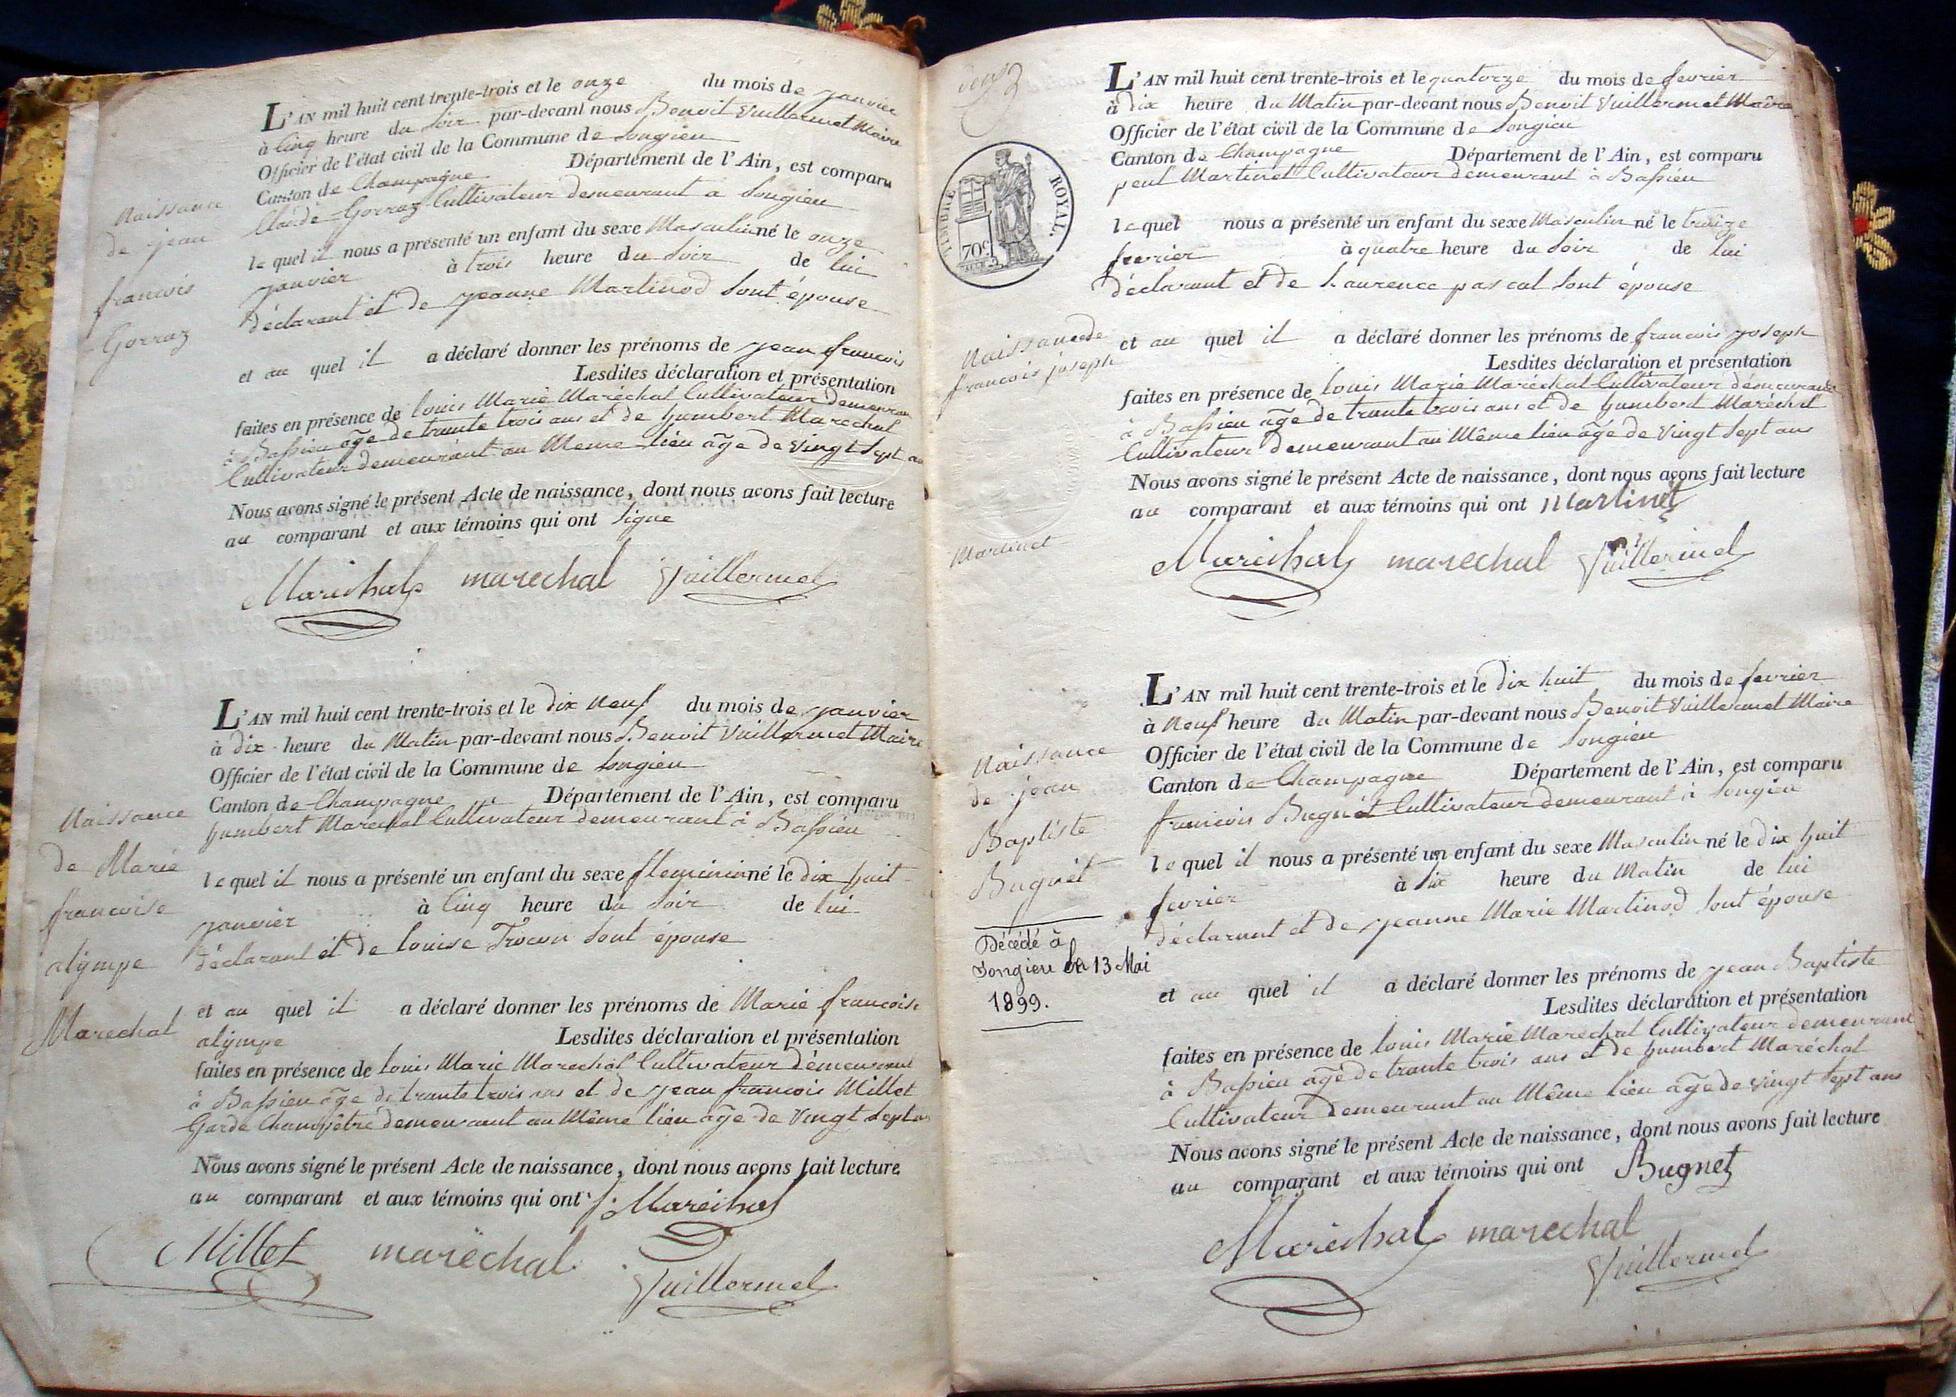 L'AN mil huit cent trente-trois et le onze du mois de janvier
à Cinq heure du Soir par-devant nous Benoit Vuillermet Maire
Officier de l'état civil de la Commune de Songieu
Canton de Champagne Département de l'Ain, est comparu
Claude Gorraz Cultivateur demeurant a Songieu
le quel il nous a présenté un enfant du sexe Masculin né le onze
janvier à trois heure du Soir de lui
déclarant et de jeanne Martinod Sont épouse
et au quel il a déclaré donner les prénoms de jean francois
Lesdites déclaration et présentation
faites en présence de louis Marie Maréchal Cultivateur demeurant
à Bassieu age de trante trois ans et de humbert Marechal
Cultivateur demeurant au Meme lieu age de vingt Sept ans
Nous avons signé le présent Acte de naissance, dont nous avons fait lecture
au comparant et aux témoins qui ont Signe
Maréchal marechal Vuillermet
Naissance
de jean
francois
Gorraz
L'AN mil huit cent trente-trois et le dix neuf du mois de janvier
à dix heure du Matin par-devant nous Benoit Vuillermet Maire
Officier de l'état civil de la Commune de Songieu
Canton de Champagne Département de l'Ain, est comparu
humbert Marechal Cultivateur demeurant à Bassieu
le quel il nous a présenté un enfant du sexe fleminin né le dix huit
janvier à Cinq heure du Soir de lui
déclarant et de louise Trocon Sont épouse
et au quel il a déclaré donner les prénoms de Marie francoise
alympe Lesdites déclaration et présentation
faites en présence de louis Marie Marechal Cultivateur demeurant
à Bassieu age de trante trois ans et de jean francois Millet
Garde Champêtre demeurant au Même lieu age de vingt Sept ans
Nous avons signé le présent Acte de naissance, dont nous avons fait lecture
au comparant et aux témoins qui ont Marechal
Millet maréchal
Vuillermet
Naissance
de Marie
francoise
alympe
Marechal
L'AN mil huit cent trente-trois et le quatorze du mois de fevrier
à dix heure du Matin par-devant nous Benoit Vuillermet Maire
Officier de l'état civil de la Commune de Songieu
Canton de Champagne Département de l'Ain, est comparu
peul Martinet Cultivateur demeurant à Bassieu
le quel nous a présenté un enfant du sexe Masculin né le treize
fevrier à quatre heure du Soir de lui
déclarant et de Laurence pascal Sont épouse
et au quel il a déclaré donner les prénoms de francois joseph
Lesdites déclaration et présentation
faites en présence de louis Marie Maréchal Cultivateur demeurant
à Bassieu age de trante trois ans et de humbert Maréchal
Cultivateur demeurant au Même lieu age de vingt Sept ans
Nous avons signé le présent Acte de naissance, dont nous avons fait lecture
au comparant et aux témoins qui ont Martinet
Maréchal marechal Vuillermet
TIMBRE ROYAL.
70c
Naissance de
francois joseph
Martinet
L'AN mil huit cent trente-trois et le dix huit du mois de fevrier
à Neuf heure du Matin par-devant nous Benoit Vuillermet Maire
Officier de l'état civil de la Commune de Songieu
Canton de Champagne Département de l'Ain, est comparu
francois Bugnét Cultivateur demeurant à Songieu
le quel il nous a présenté un enfant du sexe Masculin né le dix huit
fevrier à Six heure du Matin de lui
déclarant et de jeanne Marie Martinod Sont épouse
et au quel il a déclaré donner les prénoms de jean Baptiste
Lesdites déclaration et présentation
faites en présence de louis Marie Maréchal Cultivateur demeurant
à Bassieu age de trante trois ans et de humbert Maréchal
Cultivateur demeurant au Même lieu age de vingt Sept ans
Nous avons signé le présent Acte de naissance, dont nous avons fait lecture
au comparant et aux témoins qui ont Bugnet
Maréchal marechal
Vuillermet
Naissance
de jean
Baptiste
Bugnét
Décédé à
Songieu le 13 Mai
1899.